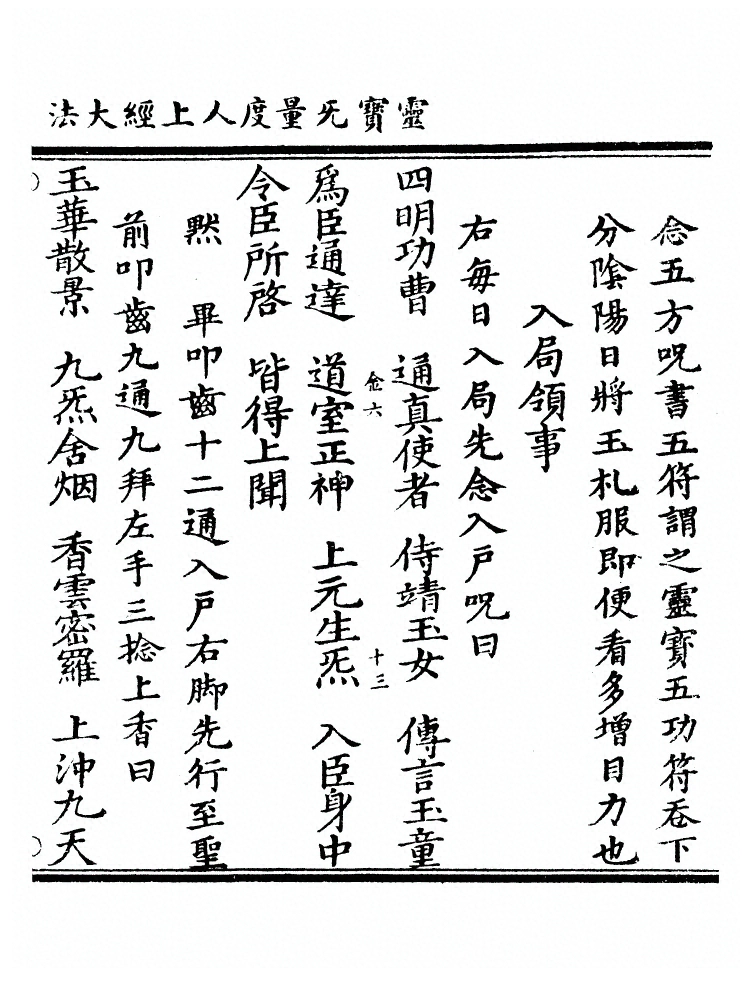 靈寶无量度人上經大法
念五方呪書五符謂之靈寶五功符吞下
分陰陽日將玉札服即便看多增目力也
入局領事
右每日入局先念入戶呪曰
四明功曹 通真使者 侍靖玉女 傳言玉童
爲臣通達 道室正神 上元生炁 入臣身中
令臣所啓 皆得上聞
黙 畢叩齒十二通入戶右脚先行至聖
前叩齒九通九拜左手三捻上香曰
玉華散景 九炁含烟 香雲密羅 上沖九天
六
十三